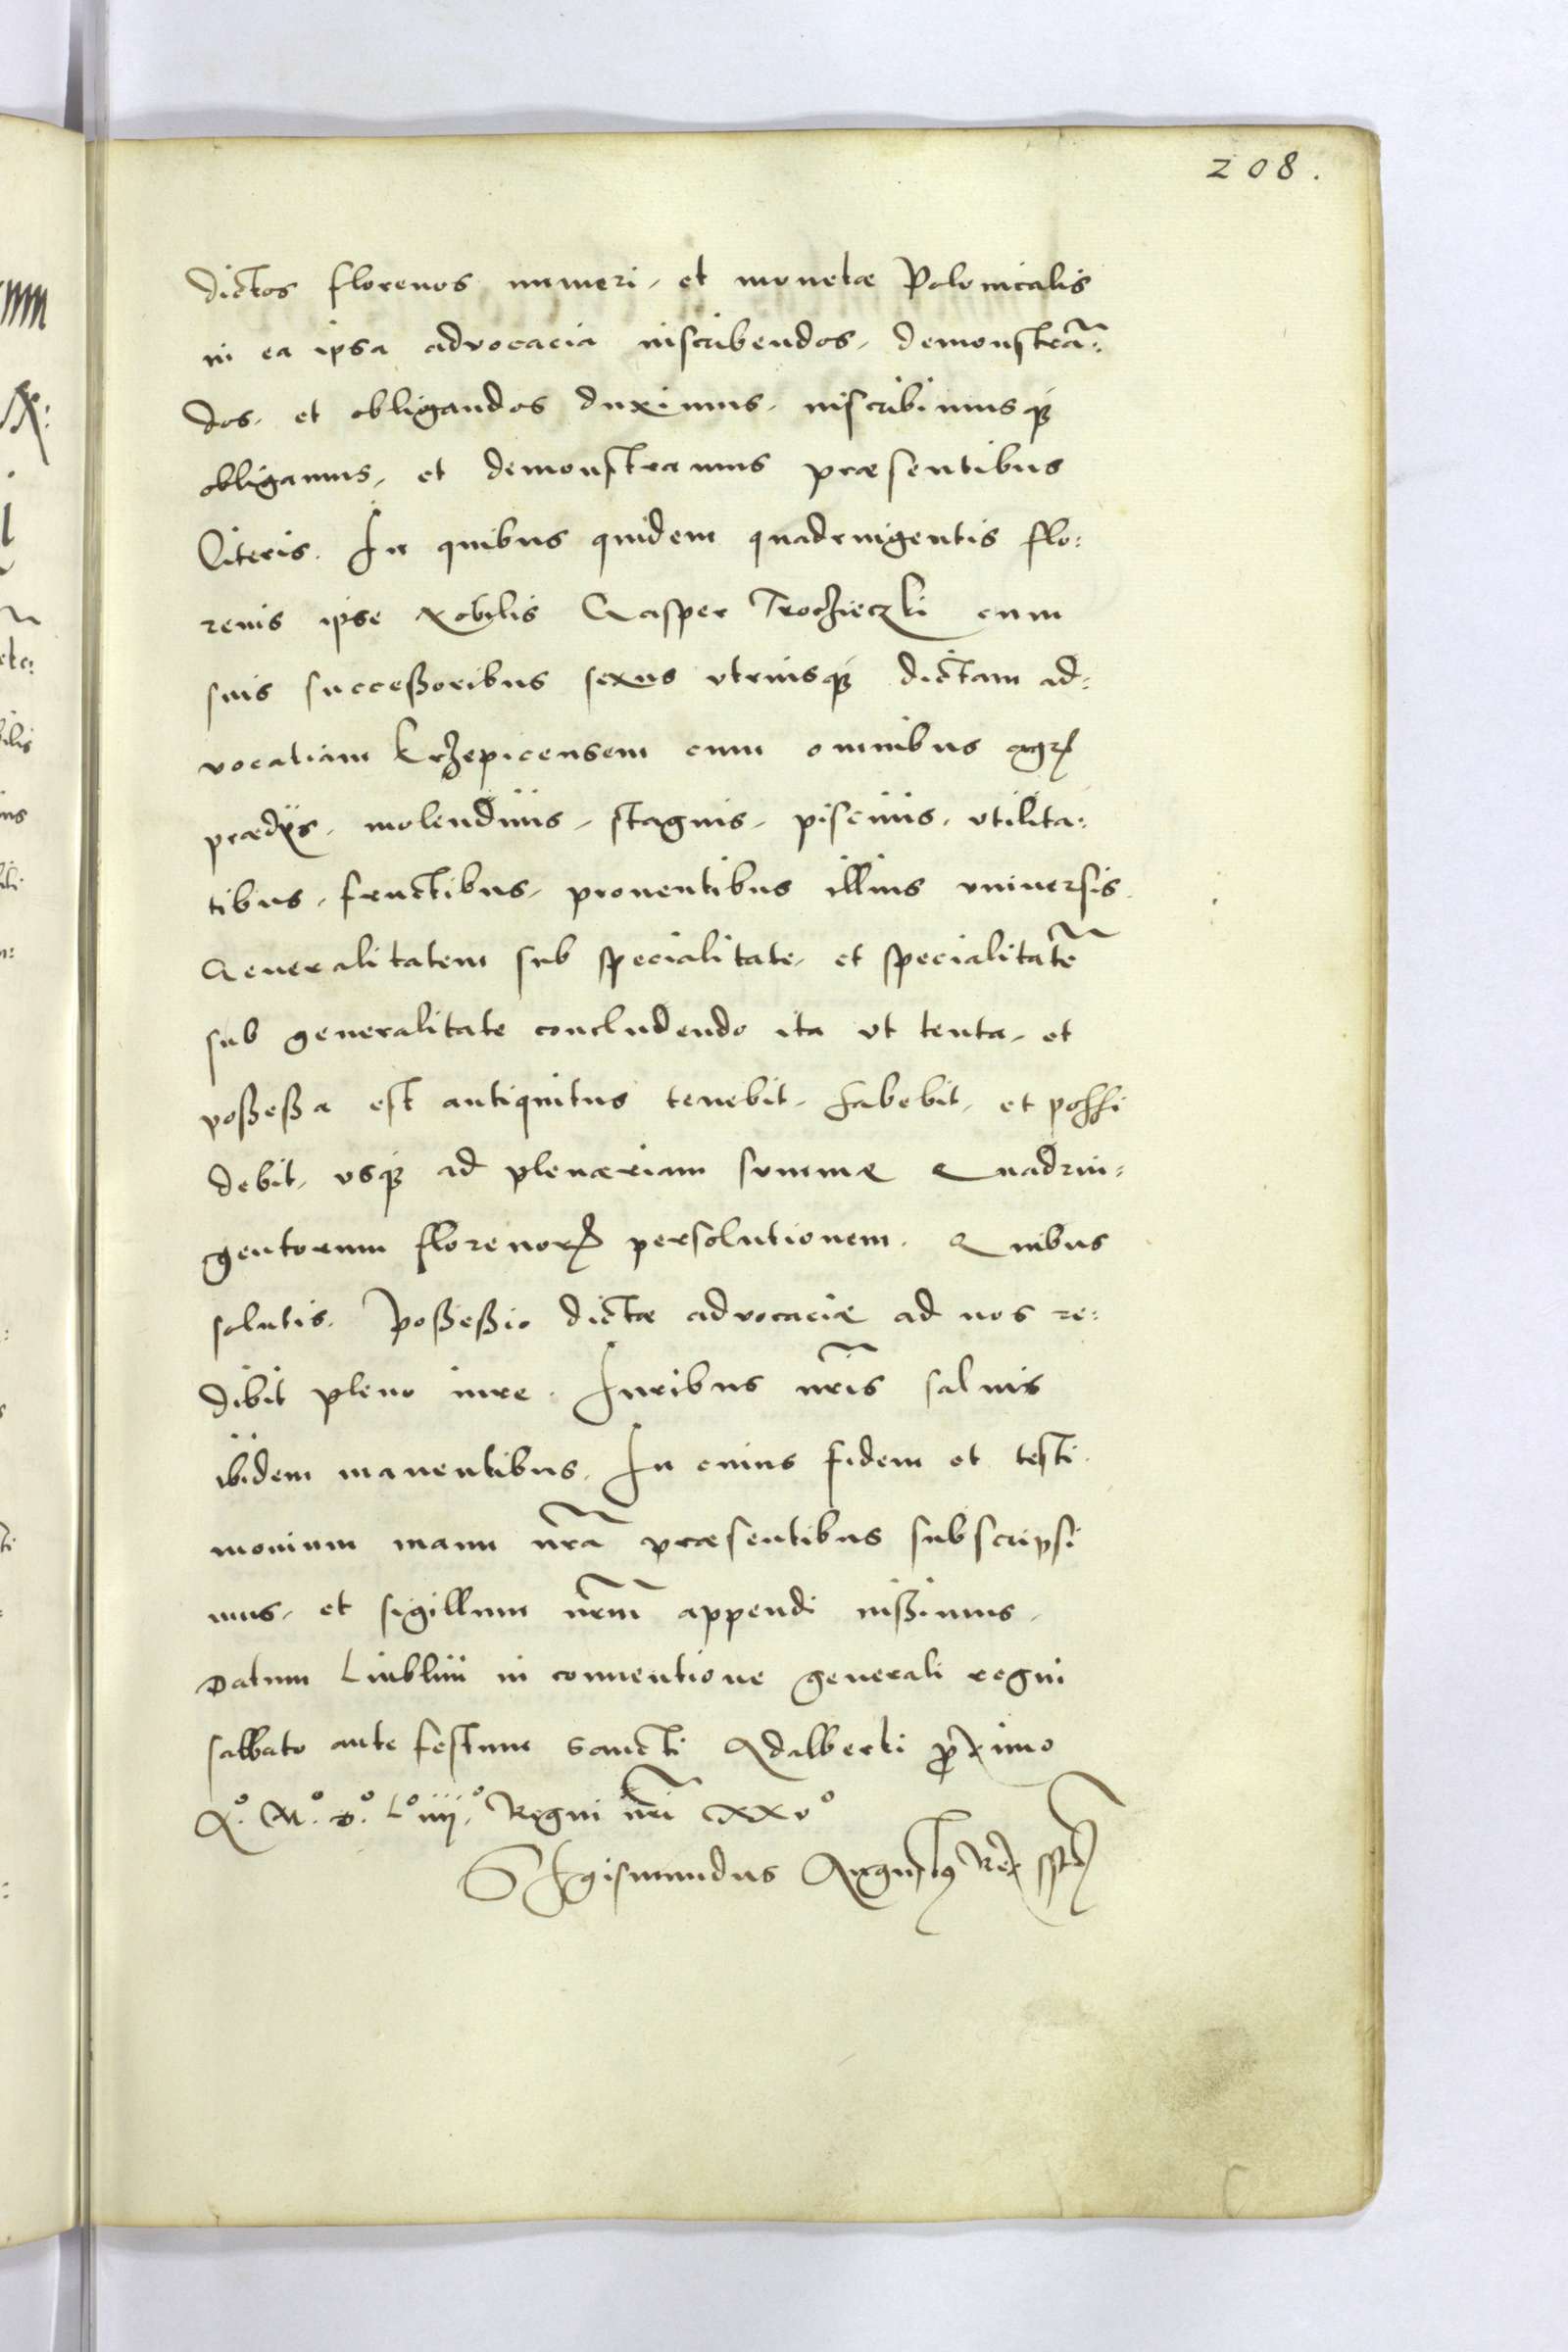 208.
dictos florenos numeri, et monetæ Polonicalis
in ea ipsa advocacia inscribendos, demonstrā:
dos, et obligandos duximus, inscribimusq̃
obligamus, et demonstramus præsentibus
Literis. In quibus quidem quadringentis flo:
renis ipse Nobilis Casper Trochieczki cum
suis succeßoribus sexus vtriusq̃ dictam ad:
vocatiam krzepicensem cum omnibus agrꝭ
prædijs, molendinis, stagnis, piscinis, vtilita:
tibus, fructibus, prouentibus illius vniuersis.
Generalitatem sub specialitate, et specialitatē
sub generalitate concludendo ita vt tenta, et
poßeßa est antiquitus tenebit, habebit, et possi
debit, vsq̃ ad plenariam summæ Quadrin:
gentorum florenorꝝ persolutionem. Quibus
solutis. Poßeßio dictæ advocaciæ ad nos re:
dibit pleno iure. Iuribus nr̃is saluis
ibidem manentibus. In cuius fidem et testi
monium manu nr̃a præsentibus subscripsi
mus, et sigillum nr̃um appendi iußimus.
Datum Liublini in conuentione generali regni
sabbato ante festum Sancti Adalberti proximo
Aº. Mº. Dº. Lº iiijº. Regni nr̃i xxvº
SIgismundus Augustꝰ Rex sst